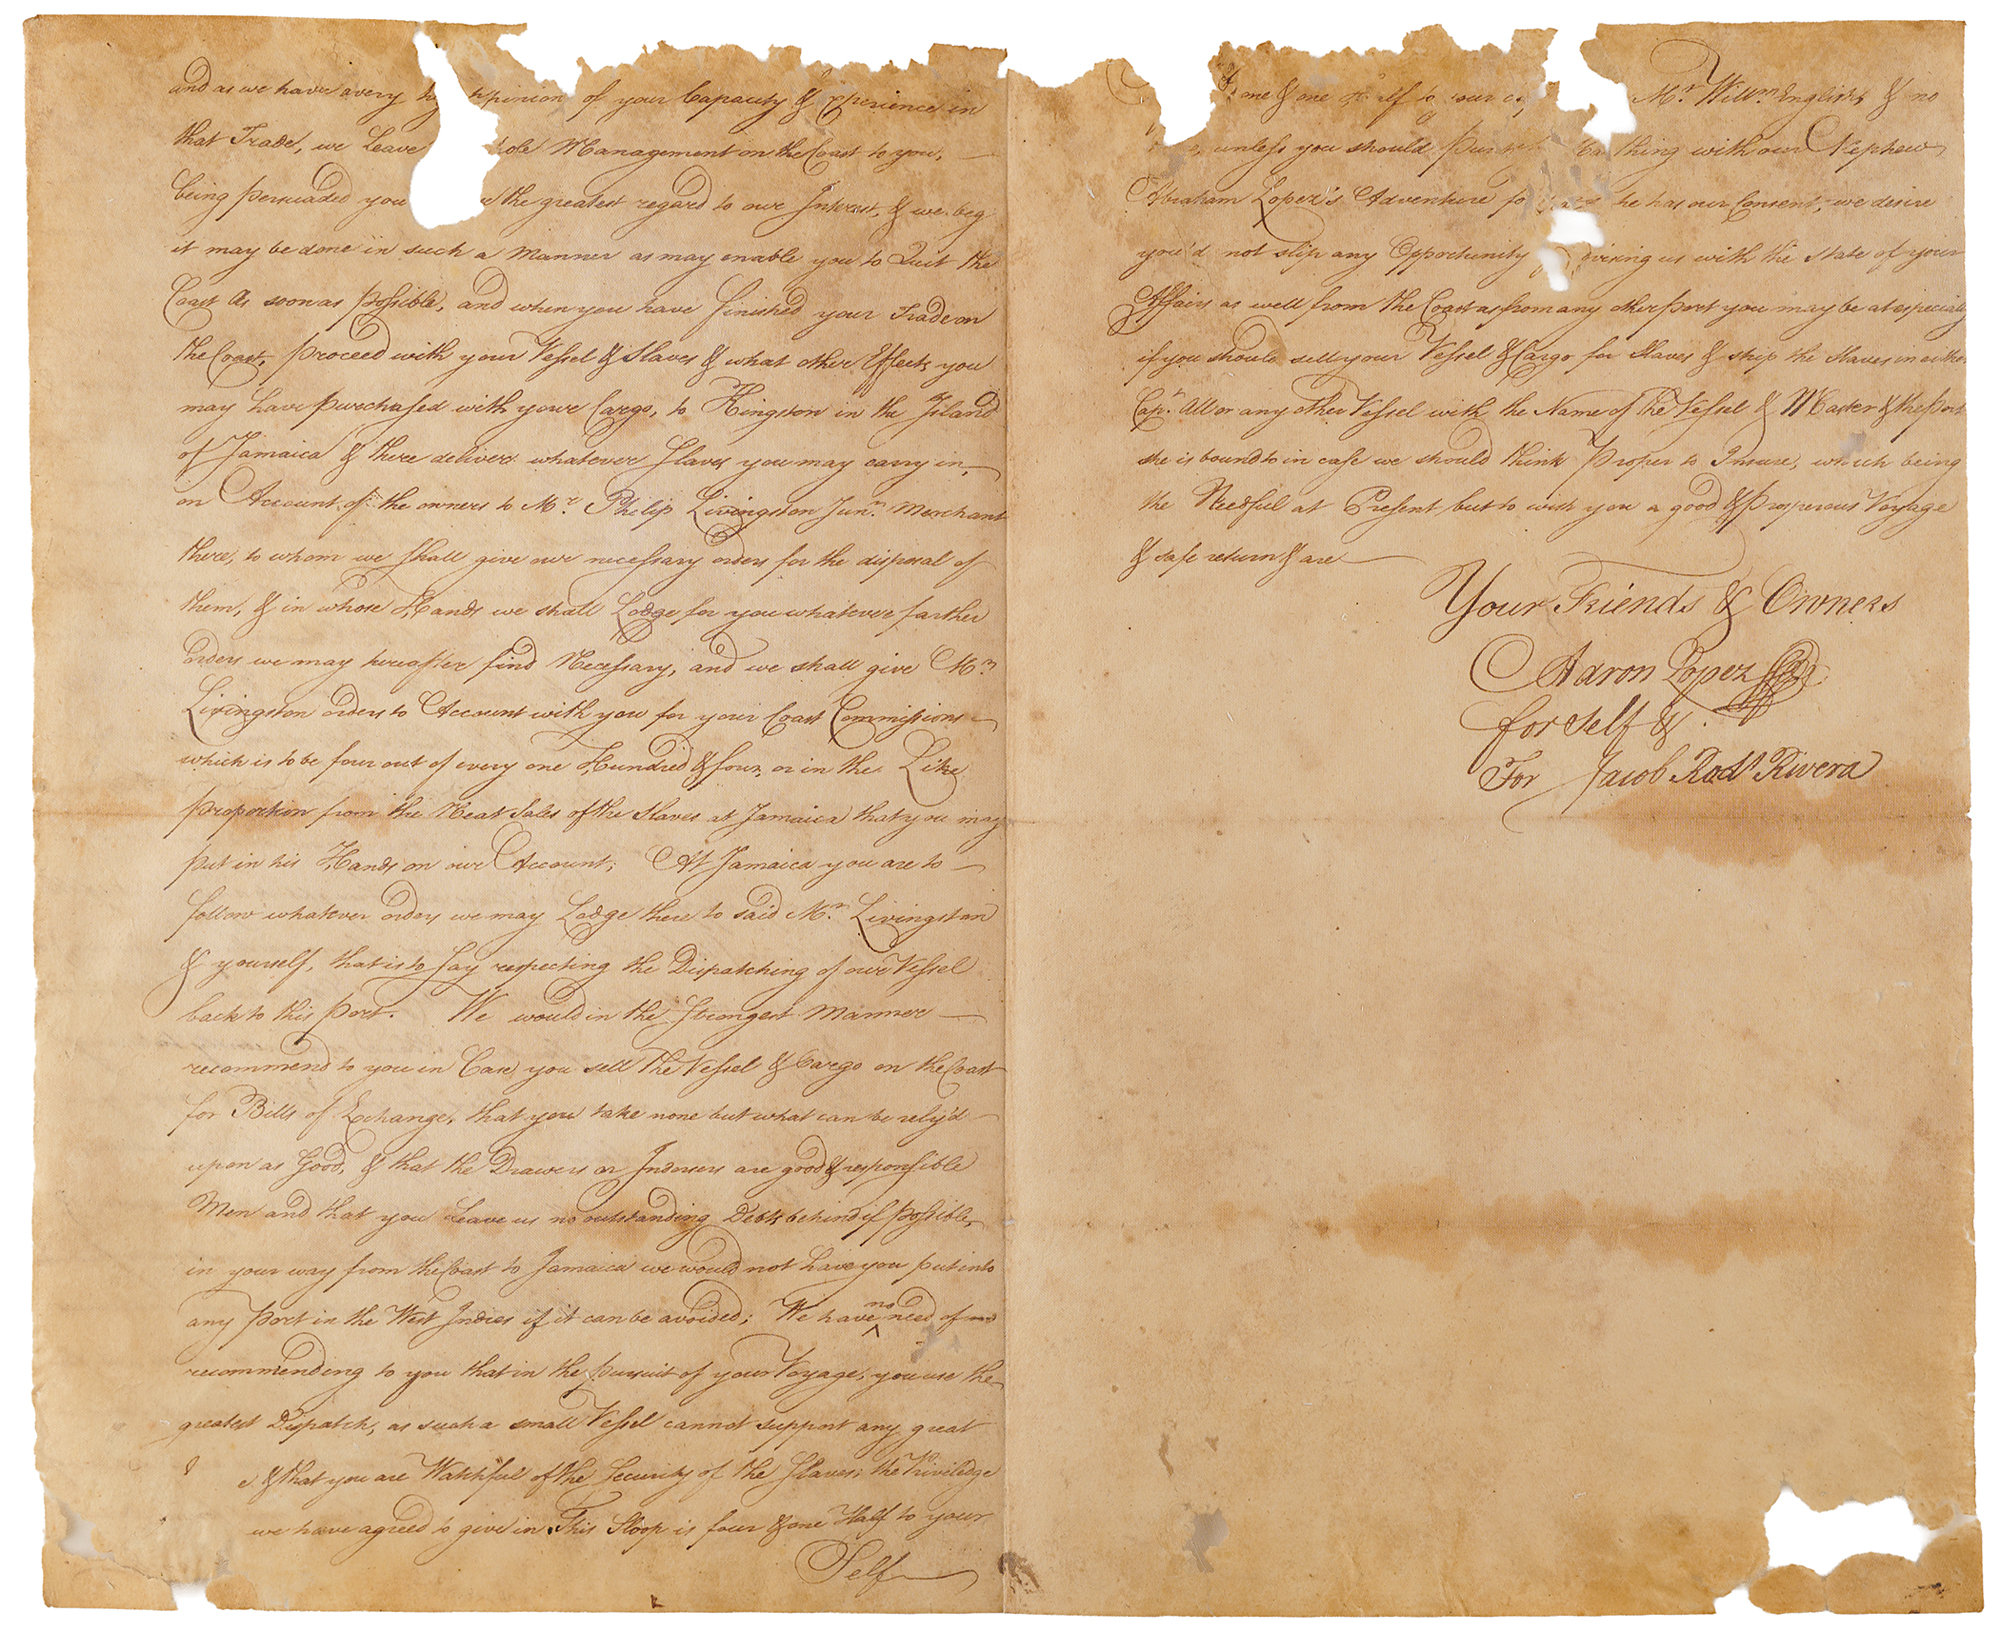 and as we have a very opinion of your Capacity & Experience in
that Trade, we Leave Management on the Coast to you,
being persuaded you the greatest regard to our Interest, & we beg
it may be done in such a Manner as may enable you to Quit the
Coast As soon as possible, and when you have finished your Trade on
the Coast, proceed with your Vessel & Slaves & what other Effects you
may have purchased with your Cargo, to Kingston in the Island
of Jamaica & there deliver whatever Slaves you may carry in,
on Account of the owners to Mr. Philip Livingston Junr. Merchant
there, to whom we shall give our necessary orders for the disposal of
them, & in whose Hands we shall Lodge for you whatever farther
orders we may hereafter find Necessary, and we shall give Mr.
Livingston orders to Account with you for your Coast Commissions
which is to be four out of every one Hundred & four, or in the Like
proportion from the Neat Sales of the Slaves at Jamaica that you may
put in his Hands on our Account; At Jamaica you are to
follow whatever orders we may Lodge there to said Mr. Livingston
& yourself, that is to say respecting the Dispatching of our Vessel
back to this port. We would in the strongest Manner
recommend to you in Case you sell the Vessel & Cargo on the Coast
for Bills of Exchange, that you take none but what can be rely'd
upon as Good, & that the Drawers or Indorsers are good & responsible
Men and that you Leave us no outstanding Debts behind if possible,
in your way from the Coast to Jamaica we would not have you put into
any port in the West Indies if it can be avoided; We have no need of
recommending to you that in the pursuit of your Voyage, you use the
greatest Dispatch, as such a small Vessel cannot support any great
& that you are Watchful of the Security of the Slaves; the Priviledge
we have agreed to give in This Sloop is four & one Half to your
Self
one & one to your Mr. Willm. English & no
unless you should thing with our Nephew
Abraham Lopez's Adventure he has our Consent, we desire
you'd not slip any Opportunity us with the State of your
Affairs as well from the Coast as from any other port you may be at especially
if you should sell your Vessel & Cargo for Slaves & ship the Slaves in either
Capt. All or any other Vessel with the Name of the Vessel & Master & the port
she is bound to in case we should think Proper to Insure, which being
the Needful at Present but to wish you a good & prosperous Voyage
& safe return & are
Your Friends & Owners
Aaron Lopez
for self &
For Jacob Rods Rivera